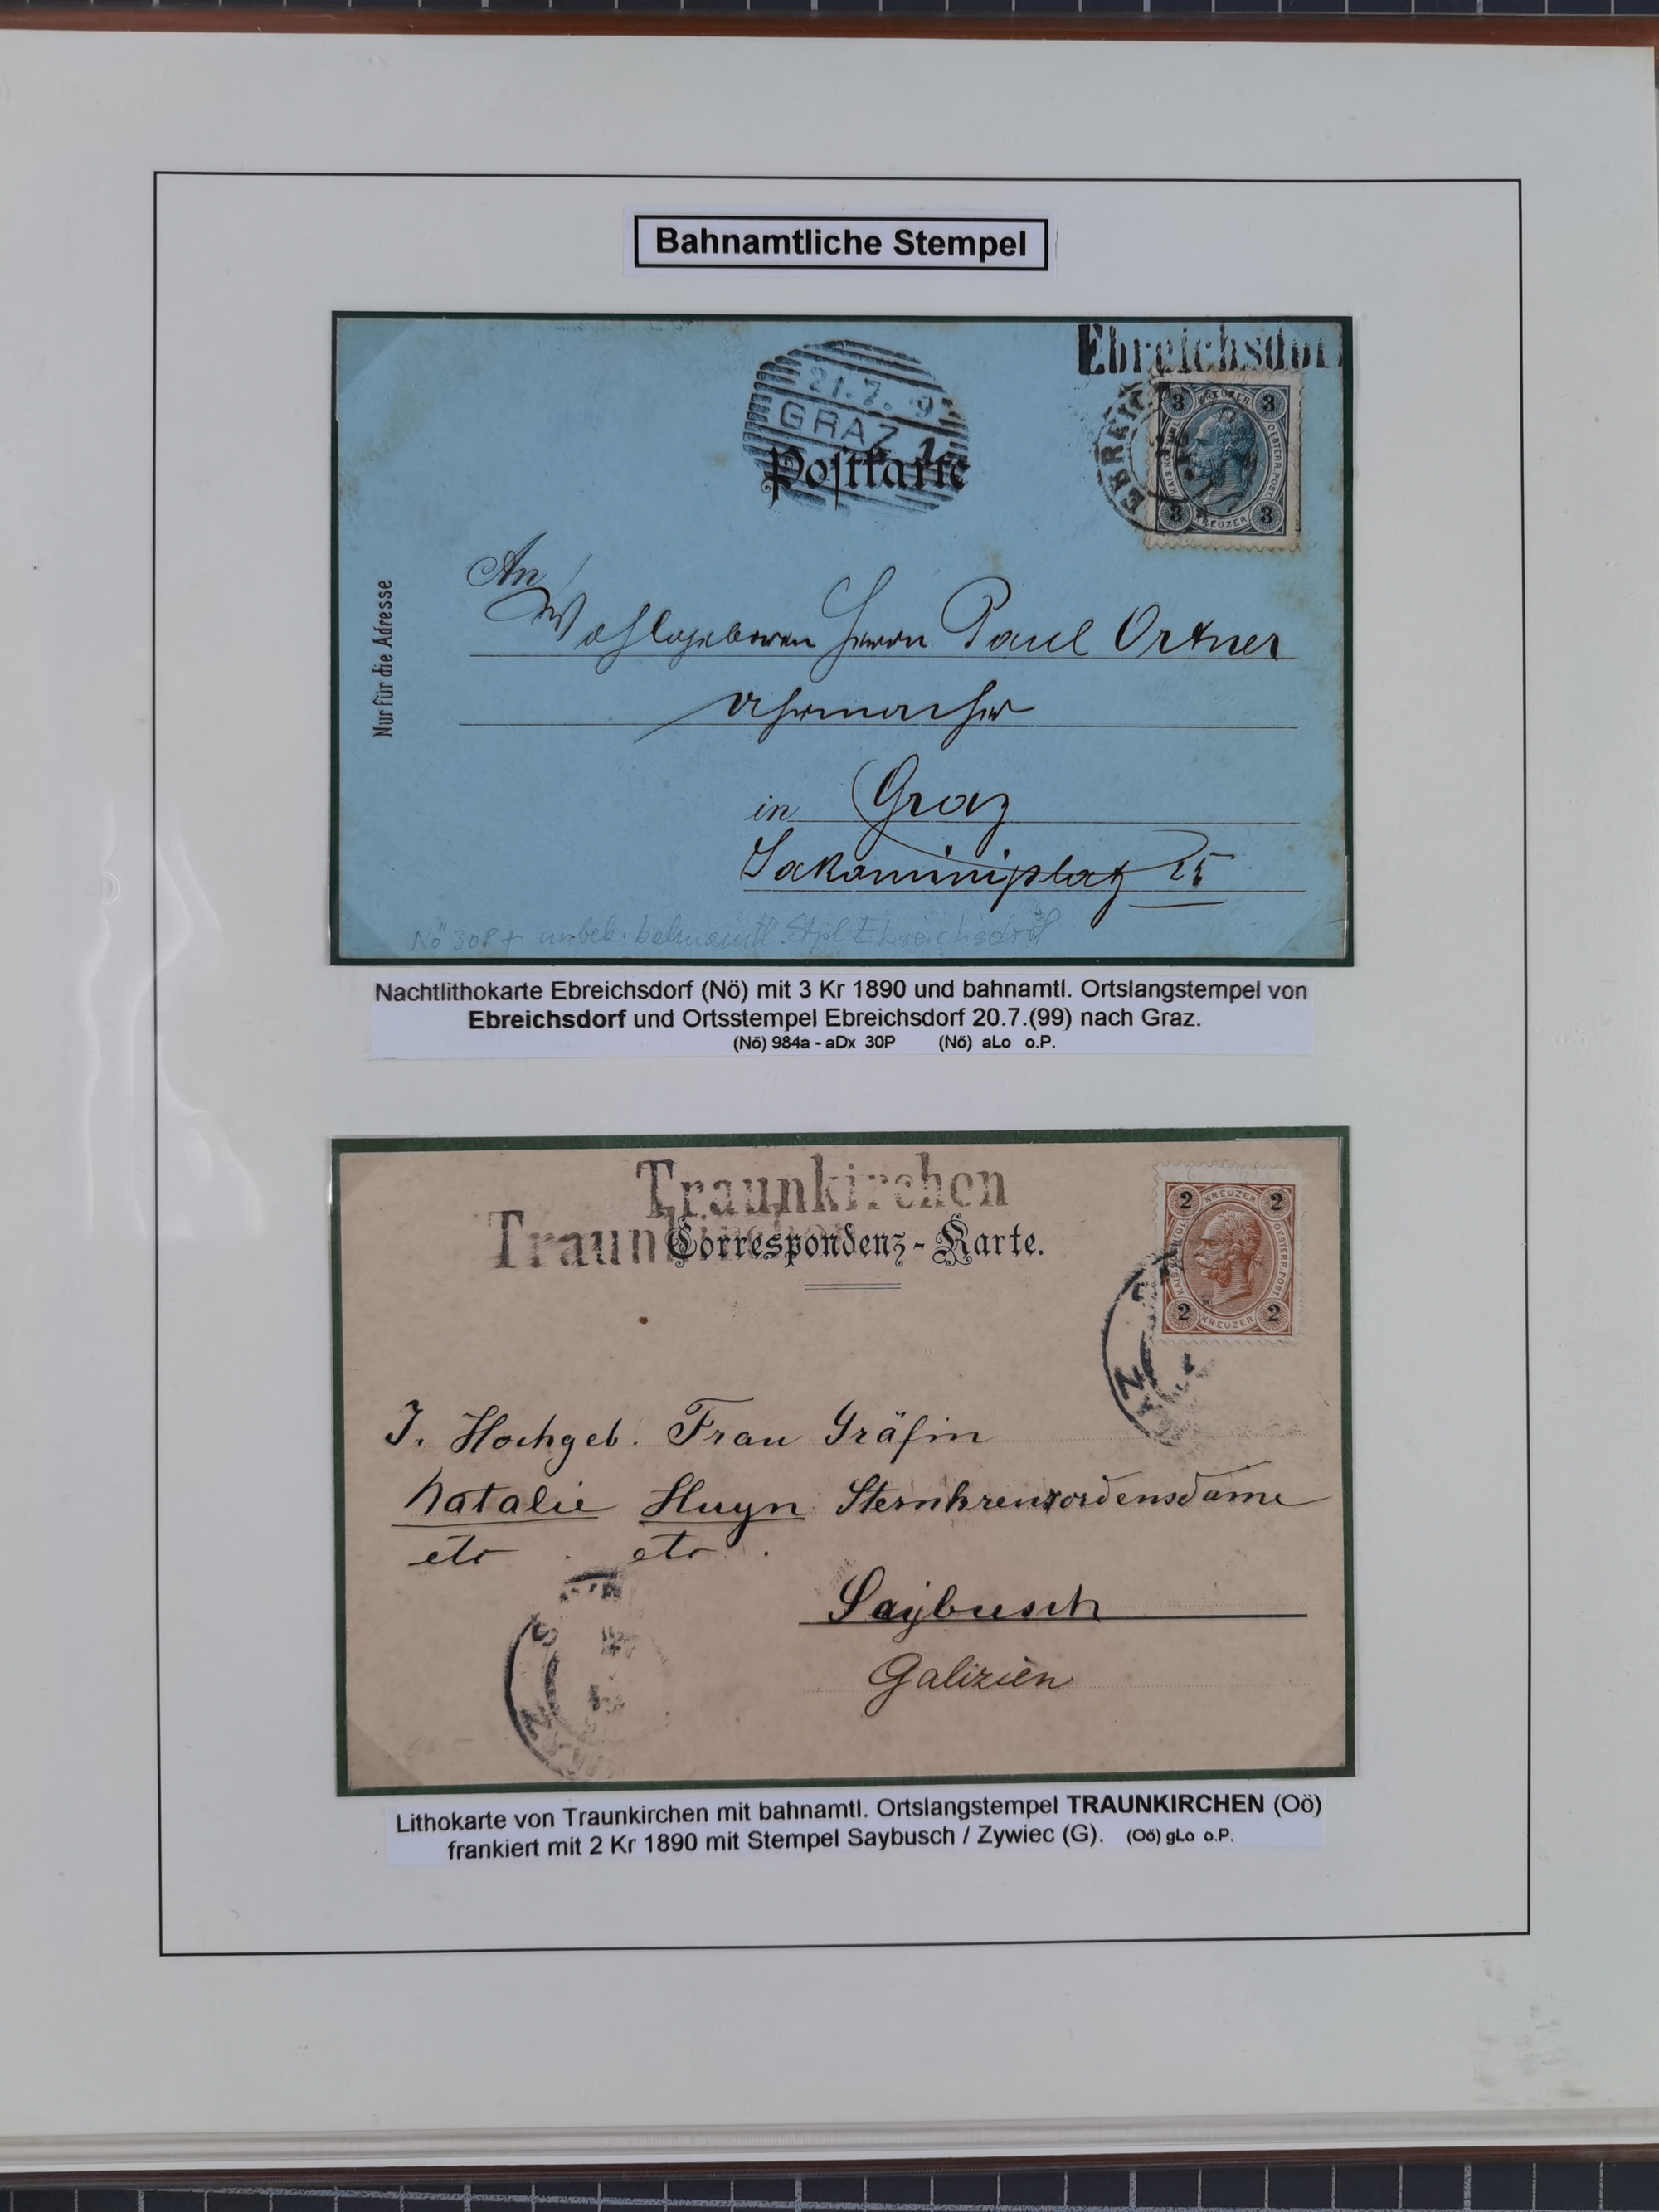 Bahnamtliche Stempel
Ebreichsdorf
21.7.9
GRAZ 1
Postkarte
EBREIC
3 KREUZER 3
KAIS. KOENIGL. OESTERR. POST.
3 KREUZER 3
Nur für die Adresse
An
Wohlgeboren Herrn Paul Ortner
Uhrmacher
in Graz
Jakominiplatz 25
Nö 30P + unbek. bahnamtl. Stpl Ebreichsdorf
Nachtlithokarte Ebreichsdorf (Nö) mit 3 Kr 1890 und bahnamtl. Ortslangstempel von
Ebreichsdorf und Ortsstempel Ebreichsdorf 20.7.(99) nach Graz.
(Nö) 984a - aDx 30P (Nö) aLo o.P.
Traunkirchen
Traunkirchen
Correspondenz-Karte.
2 KREUZER 2
KAIS. KOENIGL. OESTERR. POST.
2 KREUZER 2
J. Hochgeb. Frau Gräfin
Natalie Huyn Sternkreuzordensdame
etc. etc.
Saybusch
Galizien
Lithokarte von Traunkirchen mit bahnamtl. Ortslangstempel TRAUNKIRCHEN (Oö)
frankiert mit 2 Kr 1890 mit Stempel Saybusch / Zywiec (G). (Oö) gLo o.P.